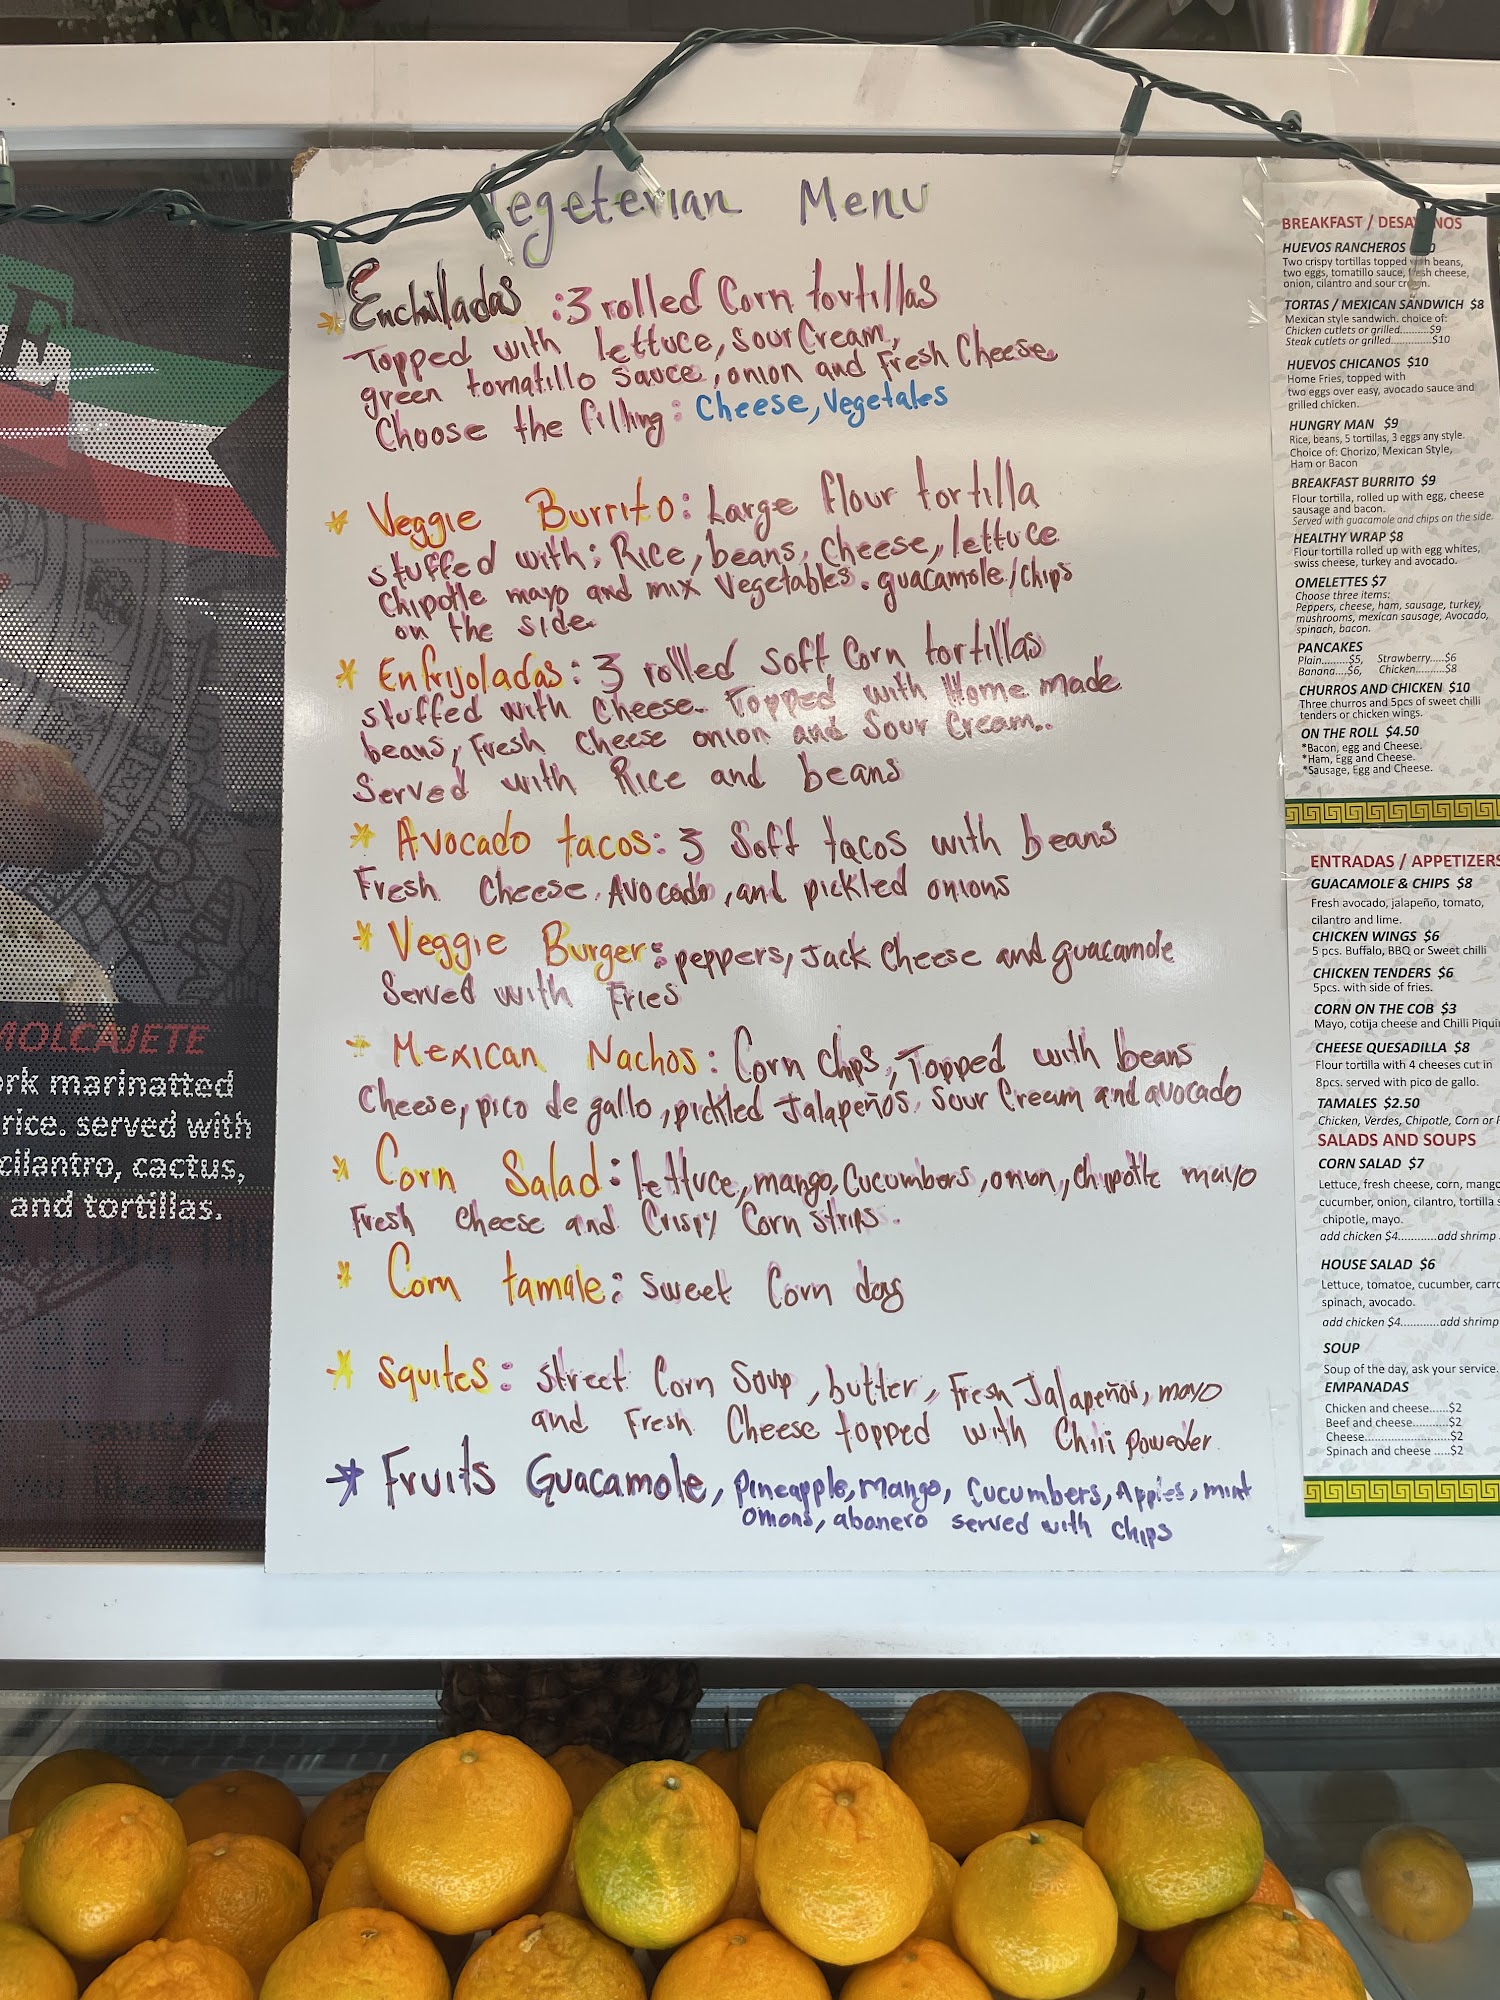 Vegeterian Menu
* Enchiladas : 3 rolled Corn tortillas
Topped with lettuce, Sour Cream,
green tomatillo sauce, onion and Fresh Cheese
Choose the filling: Cheese, Vegetales
* Veggie Burrito: Large flour tortilla
stuffed with; Rice, beans, Cheese, lettuce
Chipotle mayo and mix Vegetables. guacamole/chips
on the side
* Enfrijoladas: 3 rolled soft Corn tortillas
stuffed with Cheese. Topped with Home made
beans, Fresh Cheese onion and Sour Cream..
Served with Rice and beans
* Avocado tacos: 3 Soft tacos with beans
Fresh Cheese, Avocado, and pickled onions
* Veggie Burger: peppers, Jack Cheese and guacamole
Served with Fries
* Mexican Nachos: Corn chips, Topped with beans
Cheese, pico de gallo, pickled Jalapeños, Sour Cream and avocado
* Corn Salad: lettuce, mango, Cucumbers, onion, Chipotle mayo
Fresh Cheese and Crispy Corn strips.
* Corn tamale: Sweet Corn dog
* Squites: Street Corn Soup, butter, Fresh Jalapeños, mayo
and Fresh Cheese topped with Chili Poweder
* Fruits Guacamole, Pineapple, mango, Cucumbers, Apples, mint
onions, abanero served with chips
MOLCAJETE
rk marinatted
rice. served with
cilantro, cactus,
and tortillas.
BREAKFAST / DESAYUNOS
HUEVOS RANCHEROS
Two crispy tortillas topped with beans,
two eggs, tomatillo sauce, fresh cheese,
onion, cilantro and sour cream.
TORTAS / MEXICAN SANDWICH $8
Mexican style sandwich. choice of:
Chicken cutlets or grilled..........$9
Steak cutlets or grilled...............$10
HUEVOS CHICANOS $10
Home Fries, topped with
two eggs over easy, avocado sauce and
grilled chicken.
HUNGRY MAN $9
Rice, beans, 5 tortillas, 3 eggs any style.
Choice of: Chorizo, Mexican Style,
Ham or Bacon
BREAKFAST BURRITO $9
Flour tortilla, rolled up with egg, cheese
sausage and bacon.
Served with guacamole and chips on the side.
HEALTHY WRAP $8
Flour tortilla rolled up with egg whites,
swiss cheese, turkey and avocado.
OMELETTES $7
Choose three items:
Peppers, cheese, ham, sausage, turkey,
mushrooms, mexican sausage, Avocado,
spinach, bacon.
PANCAKES
Plain.........$5, Strawberry.....$6
Banana....$6, Chicken..........$8
CHURROS AND CHICKEN $10
Three churros and 5pcs of sweet chilli
tenders or chicken wings.
ON THE ROLL $4.50
*Bacon, egg and Cheese.
*Ham, Egg and Cheese.
*Sausage, Egg and Cheese.
ENTRADAS / APPETIZERS
GUACAMOLE & CHIPS $8
Fresh avocado, jalapeño, tomato,
cilantro and lime.
CHICKEN WINGS $6
5 pcs. Buffalo, BBQ or Sweet chilli
CHICKEN TENDERS $6
5pcs. with side of fries.
CORN ON THE COB $3
Mayo, cotija cheese and Chilli Piquin
CHEESE QUESADILLA $8
Flour tortilla with 4 cheeses cut in
8pcs. served with pico de gallo.
TAMALES $2.50
Chicken, Verdes, Chipotle, Corn or
SALADS AND SOUPS
CORN SALAD $7
Lettuce, fresh cheese, corn, mango
cucumber, onion, cilantro, tortilla
chipotle, mayo.
add chicken $4............add shrimp
HOUSE SALAD $6
Lettuce, tomatoe, cucumber, carro
spinach, avocado.
add chicken $4............add shrimp
SOUP
Soup of the day, ask your service.
EMPANADAS
Chicken and cheese......$2
Beef and cheese...........$2
Cheese...........................$2
Spinach and cheese .....$2